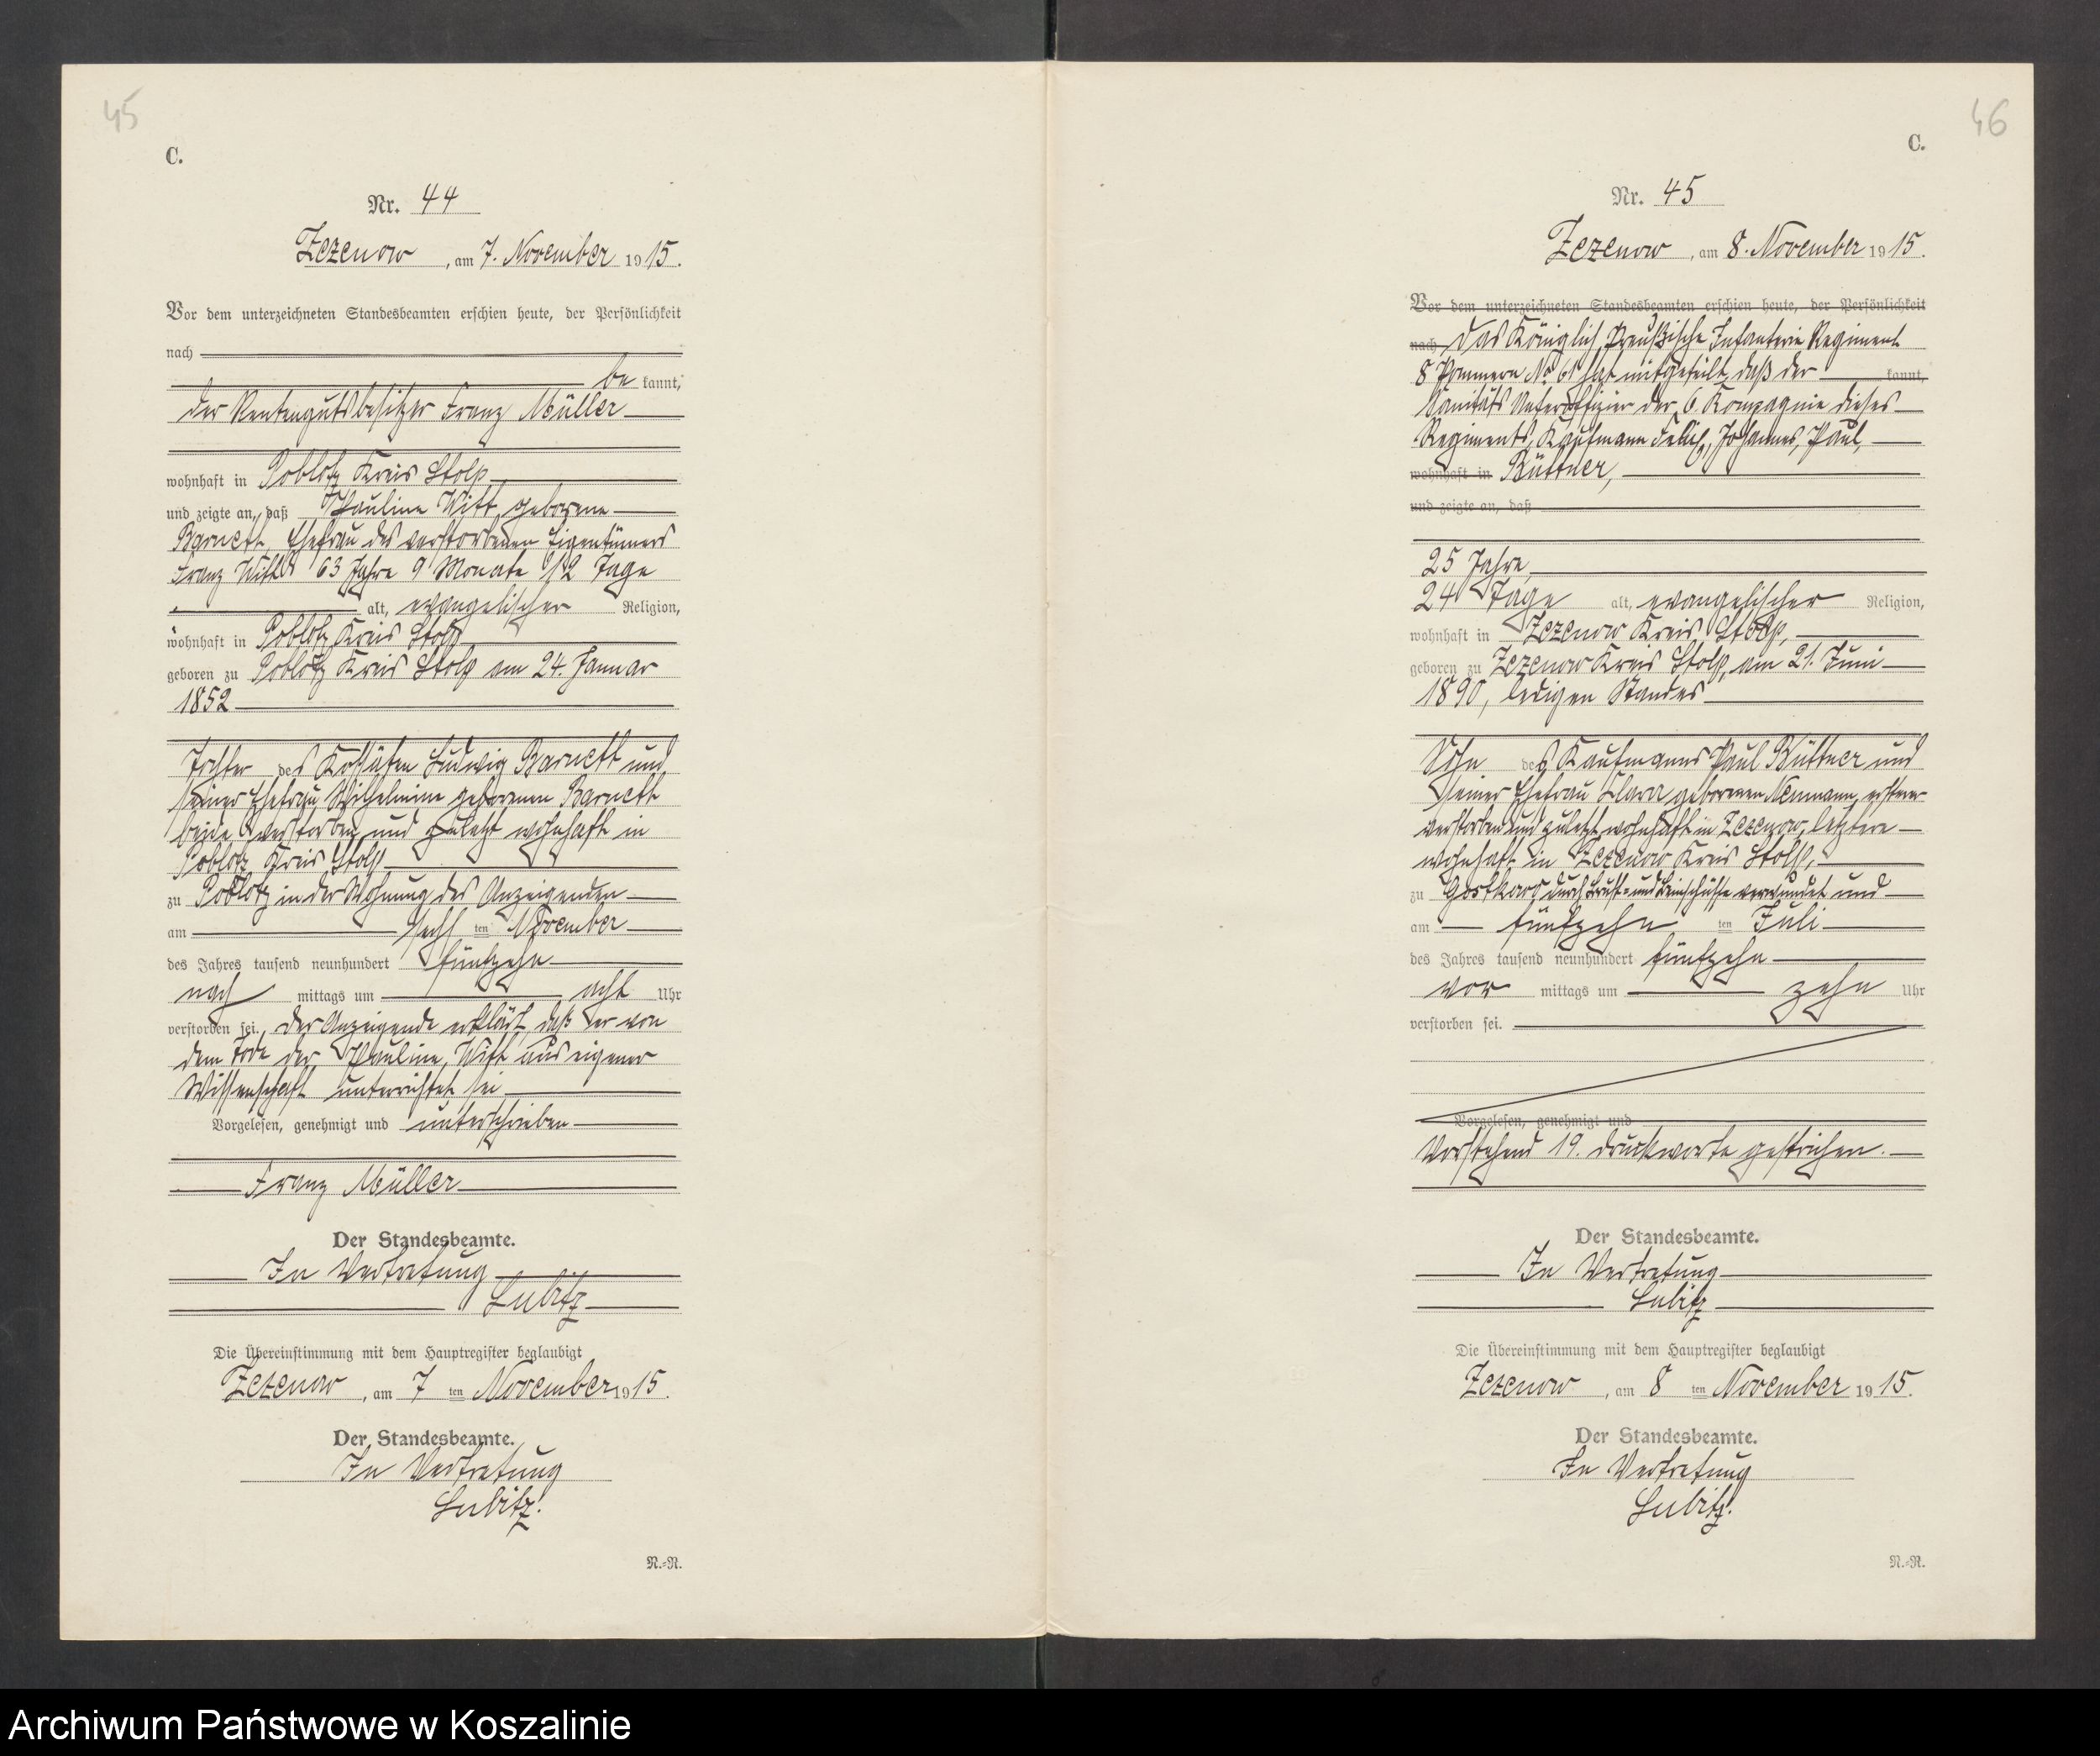 45
C.
Nr. 44
Zezenow, am 7. November 1915.
Vor dem unterzeichneten Standesbeamten erschien heute, der Persönlichkeit
nach
be kannt,
der Rentengutsbesitzer Franz Müller
wohnhaft in Poblotz Kreis Stolp,
und zeigte an, daß Pauline Witt, geborene
Barnett, Ehefrau des verstorbenen Eigentümers
Franz Witt 63 Jahre 9 Monate 12 Tage
alt, evangelischer Religion,
wohnhaft in Poblotz Kreis Stolp
geboren zu Poblotz Kreis Stolp am 24. Januar
1852
Tochter des Kossäten Ludwig Barnett und
seiner Ehefrau Wilhelmine geborenen Barnett
beide verstorben und zuletzt wohnhaft in
Poblotz Kreis Stolp
zu Poblotz in der Wohnung des Anzeigenden
am sechsten November
des Jahres tausend neunhundert fünfzehn
nach mittags um acht Uhr
verstorben sei. Der Anzeigende erklärt, daß er von
dem Tode der Pauline Witt aus eigener
Wissenschaft unterrichtet sei
Vorgelesen, genehmigt und unterschrieben
Franz Müller
Der Standesbeamte.
In Vertretung
Lubitz
Die Übereinstimmung mit dem Hauptregister beglaubigt
Zezenow, am 7 ten November 1915.
Der Standesbeamte.
In Vertretung
Lubitz.
N.=R.
46
C.
Nr. 45
Zezenow, am 8. November 1915.
Vor dem unterzeichneten Standesbeamten erschien heute, der Persönlichkeit
nach Das Königlich Preußische Infanterie Regiment
8 Pommern No 61 hat mitgeteilt, daß der kannt,
Sanitäts Unteroffizier der 6. Kompagnie dieses
Regiments, Kaufmann Johannes, Paul,
wohnhaft in Büttner,
und zeigte an, daß
25 Jahre,
24 Tage alt, evangelischer Religion,
wohnhaft in Zezenow Kreis Stolp,
geboren zu Zezenow Kreis Stolp, am 21. Juni
1890, ledigen Standes
Sohn des Kaufmanns Paul Büttner und
seiner Ehefrau Clara geborenen Neumann, ersterer
verstorben und zuletzt wohnhaft in Zezenow, letztere
wohnhaft in Zezenow Kreis Stolp,
zu durch Brust= und Beinschüsse verwundet und
am fünfzehn ten Juli
des Jahres tausend neunhundert fünfzehn
vor mittags um zehn Uhr
verstorben sei.
Vorgelesen, genehmigt und
Vorstehend 19. Druckworte gestrichen.
Der Standesbeamte.
In Vertretung
Lubitz
Die Übereinstimmung mit dem Hauptregister beglaubigt
Zezenow, am 8 ten November 1915.
Der Standesbeamte.
In Vertretung
Lubitz.
N.=R.
Archiwum Państwowe w Koszalinie